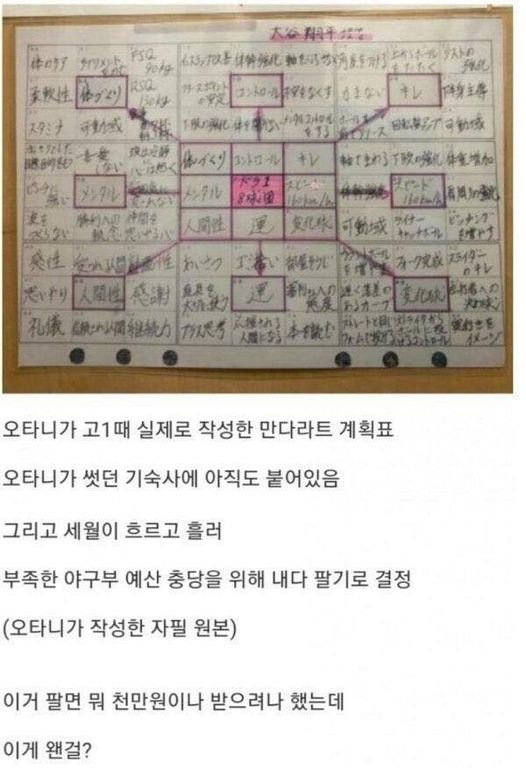 大谷翔平
体のケア サプリメントをのむ FSQ 90kg インステップ改善 体幹強化 軸をぶらさない 角度をつける 上からボールをたたく リストの強化
柔軟性 体づくり RSQ 130kg コントロール 不安をなくす 力まない キレ 下半身主導
スタミナ 可動域 下肢の強化 体を開かない メンタルコントロールをする 回転数アップ 可動域
一喜一憂しない 体づくり コントロール キレ 軸でまわる 下肢の強化 体重増加
ピンチに強い メンタル メンタル ドラ1 8球団 スピード 160km/h 体幹強化 スピード 160km/h 肩周りの強化
波をつくらない 勝利への執念 仲間を思いやる心 人間性 運 変化球 可動域 ライナーキャッチボール ピッチングを増やす
感性 愛される人間 計画性 あいさつ ゴミ拾い 部屋そうじ フォーク完成 スライダーのキレ
思いやり 人間性 感謝 道具を大切に使う 運 審判さんへの態度 遅く落差のあるカーブ 変化球
礼儀 信頼される人間 継続力 プラス思考 応援される人間になる 本を読む 奥行きをイメージ
오타니가 고1때 실제로 작성한 만다라트 계획표
오타니가 썻던 기숙사에 아직도 붙어있음
그리고 세월이 흐르고 흘러
부족한 야구부 예산 충당을 위해 내다 팔기로 결정
(오타니가 작성한 자필 원본)
이거 팔면 뭐 천만원이나 받으려나 했는데
이게 왠걸?